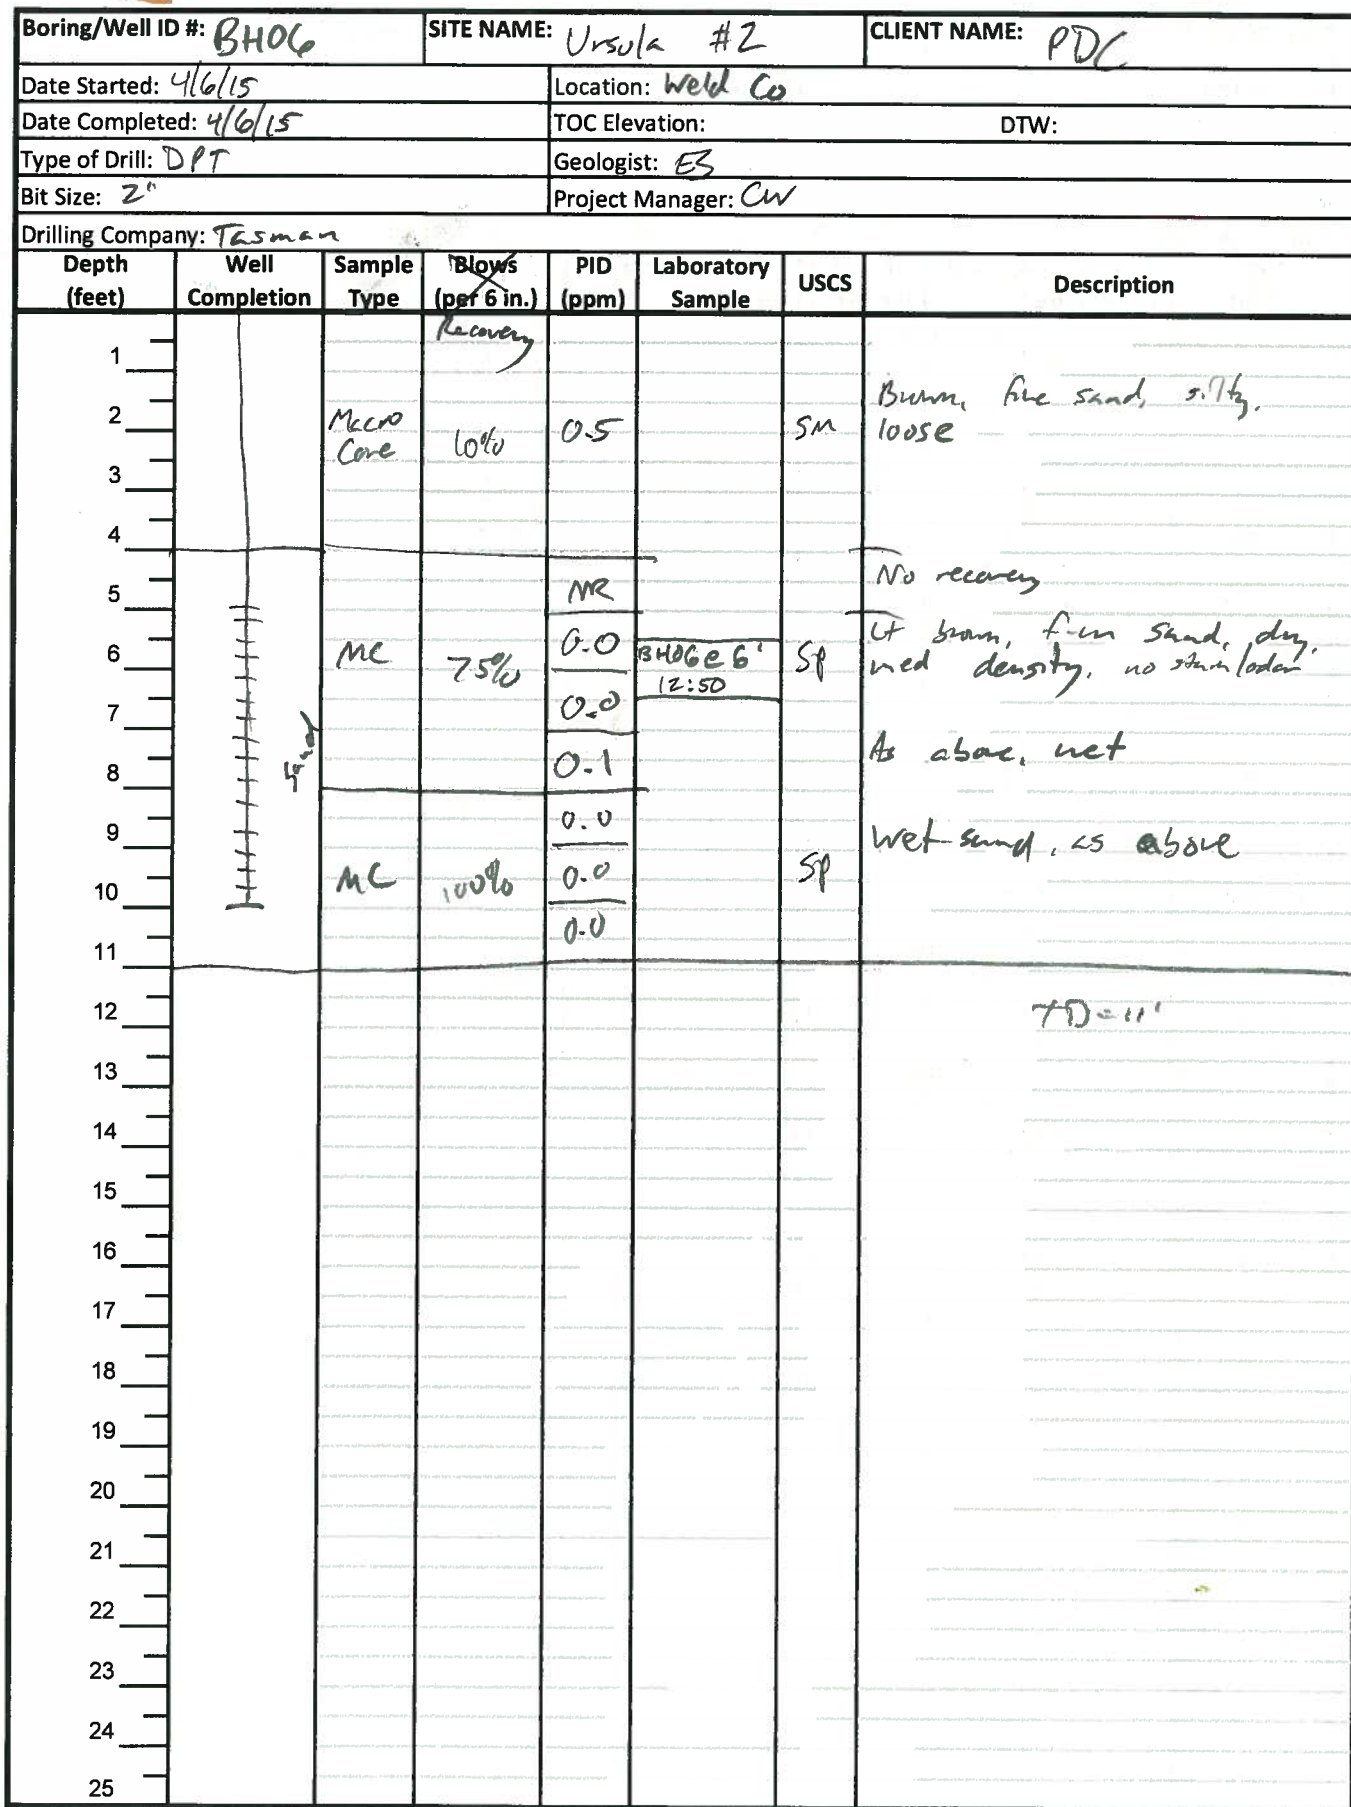 Boring/Well ID #: BH06 SITE NAME: Ursula #2 CLIENT NAME: PDC
Date Started: 4/6/15 Location: Weld Co
Date Completed: 4/6/15 TOC Elevation: DTW:
Type of Drill: DPT Geologist: ES
Bit Size: 2" Project Manager: CW
Drilling Company: Tasman
Depth (feet) Well Completion Sample Type Blows (per 6 in.) PID (ppm) Laboratory Sample USCS Description
Recovery
1
Brown, fine sand, silty,
2 Macro Core 60% 0.5 SM loose
3
4
5 NR No recovery
Lt brown, f-m sand, dry,
6 MC 75% 0.0 BH06@6' SP med density, no stain/odor
12:50
7 0.0
As above, wet
8 0.1
9 0.0 Wet sand, as above
10 MC 100% 0.0 SP
0.0
11
12 TD=11'
13
14
15
16
17
18
19
20
21
22
23
24
25